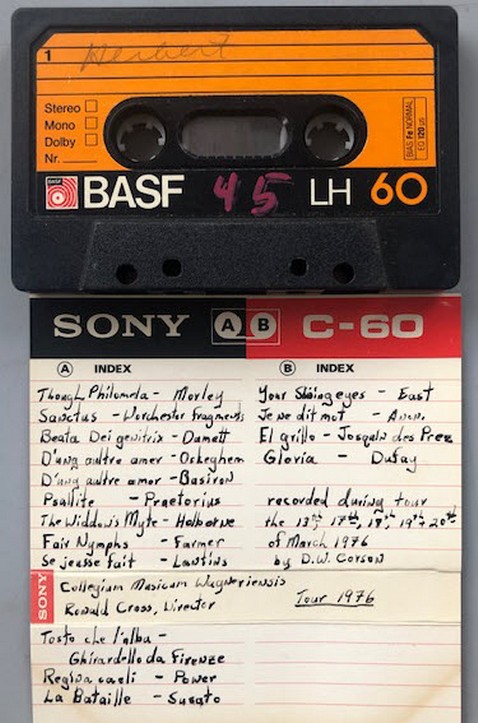 1 Herbert
Stereo
Mono
Dolby
Nr.
BIAS Fe NORMAL
EQ 120 µs
BASF 45 LH 60
SONY A B C-60
A INDEX
Though Philomela - Morley
Sanctus - Worchester fragments
Beata Dei genitrix - Damett
D'ung aultre amer - Ockeghem
D'ung aultre amor - Basiron
Psallite - Praetorius
The Widdow's Myte - Holborne
Fair Nymphs - Farmer
Se jeusse fait - Lantins
B INDEX
Your shining eyes - East
Je ne dit mot - Anon.
El grillo - Josquin des Prez
Gloria - Dufay
recorded during tour
the 13th, 17th, 18th, 19th, 20th
of March 1976
by D.W. Corson
SONY
Collegium Musicum Wagneriensis
Ronald Cross, Director
Tour 1976
Tosto che l'alba -
Ghirardello da Firenze
Regina caeli - Power
La Bataille - Susato